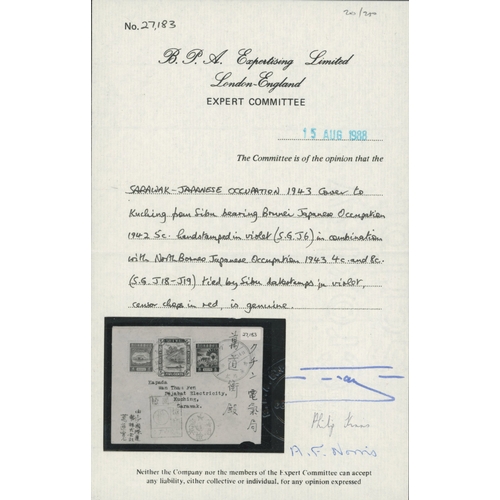 20/200
No. 27,183
B. P. A. Expertising Limited
London-England
EXPERT COMMITTEE
15 AUG 1988
The Committee is of the opinion that the
SARAWAK - JAPANESE OCCUPATION 1943 Cover to
Kuching from Sibu bearing Brunei Japanese Occupation
1942 5c. handstamped in violet (S.G. J6) in combination
with North Borneo Japanese Occupation 1943 4c. and 8c.
(S.G. J18-J19) tied by Sibu datestamps in violet,
censor chops in red, is genuine.
27183
クチン電気局
萬道衛殿
Kapada
Pejabat Electricity,
Kuching,
Sarawak.
A. F. Norris
Neither the Company nor the members of the Expert Committee can accept
any liability, either collective or individual, for any opinion expressed